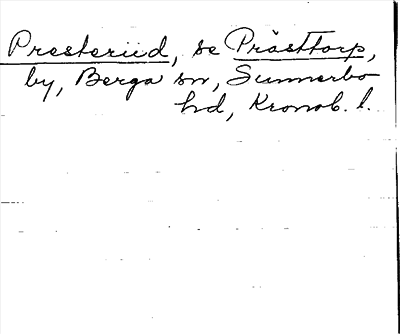 Presteriid, se Prästtorp,
by, Berga sn, Sunnerbo
hd, Kronob. l.